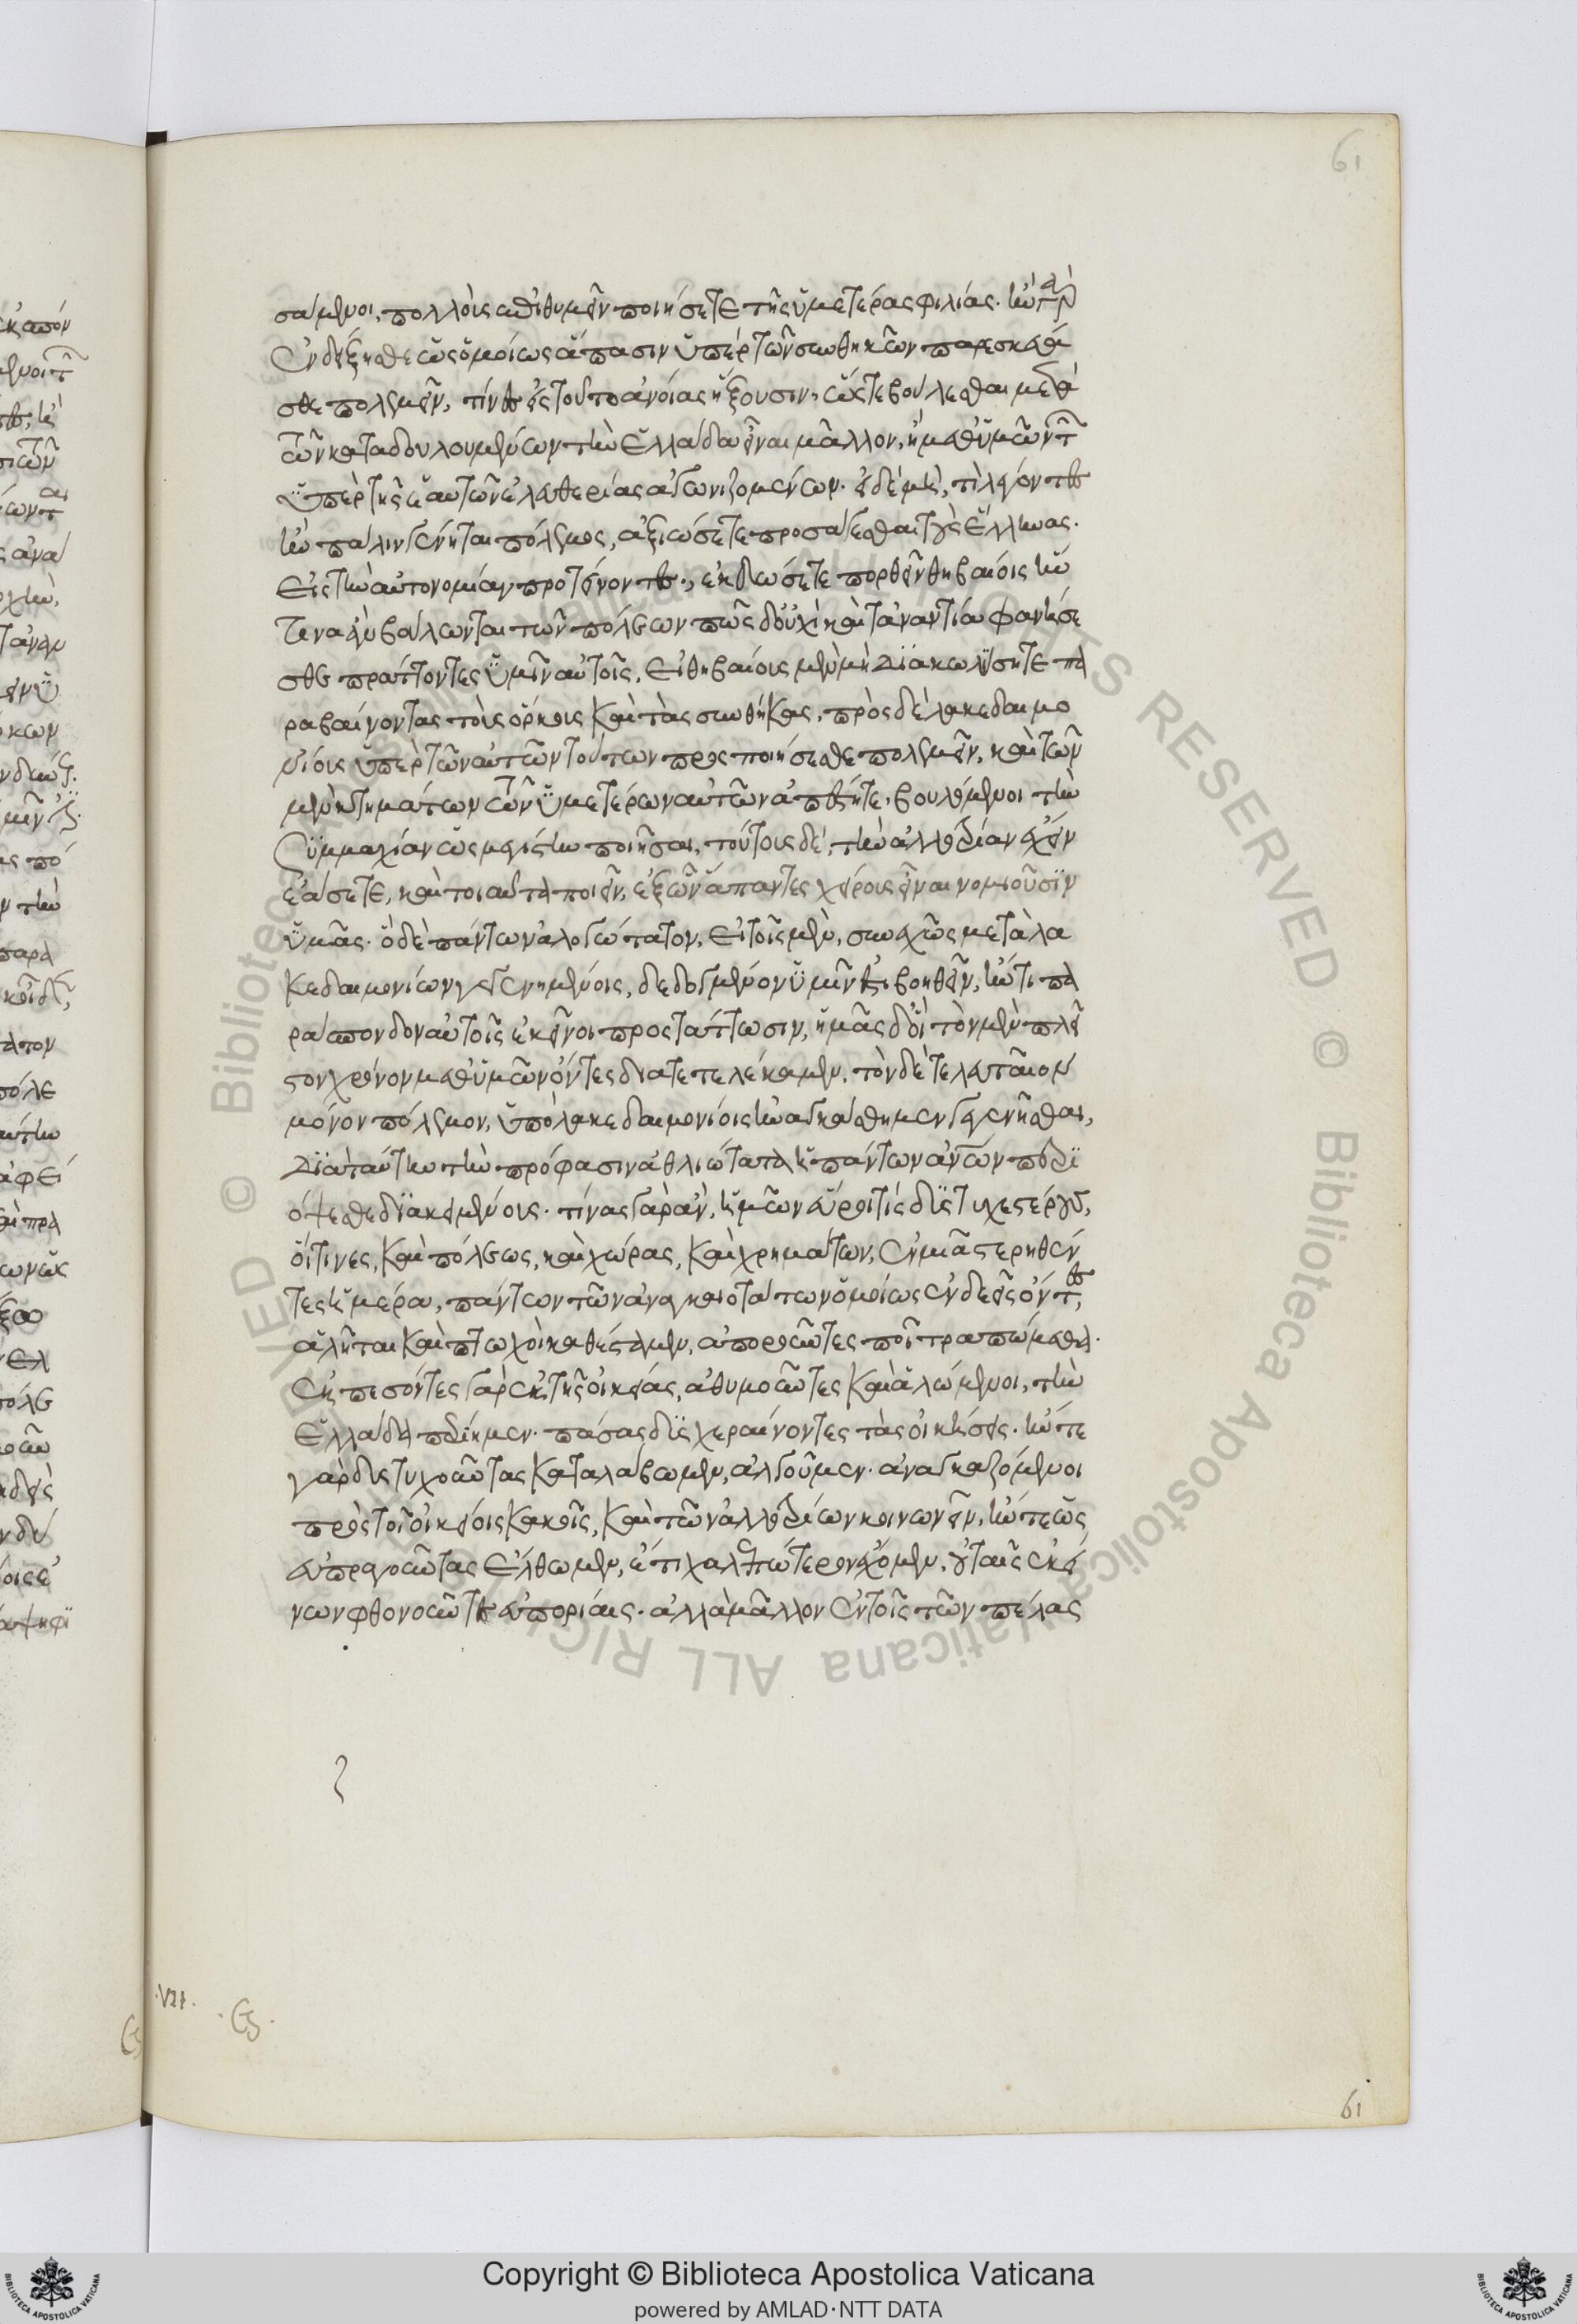 σάμενοι, πολλοὺς ἐπιθυμεῖν ποιήσετε τῆς ὑμετέρας φιλίας. ἢν γὰρ
ἐνδείξησθε ὡς ὁμοίως ἅπασιν ὑπὲρ τῶν συνθηκῶν παρεσκεύα
σθε πολεμεῖν, τίνες εἰς τοῦτο ἀνοίας ἥξουσιν, ὥστε βούλεσθαι μετὰ
τῶν καταδουλουμένων τὴν Ἑλλάδα εἶναι μᾶλλον, ἢ μεθ' ὑμῶν τῶν
ὑπὲρ τῆς ἑαυτῶν ἐλευθερίας ἀγωνιζομένων. εἰ δὲ μὴ, τί λέγοντες
ἢν πάλιν γένηται πόλεμος, ἀξιώσετε προσάγεσθαι τοὺς Ἕλληνας.
εἰς τὴν αὐτονομίαν προτείνοντες, ἐκδιώσετε πορθεῖν Θηβαίοις ἥν
τινα ἂν βούλωνται τῶν πόλεων πῶς δ' οὐχὶ καὶ τἀναντία φανήσε
σθε πράττοντες ὑμῖν αὐτοῖς, εἰ Θηβαίους μὲν μὴ διακωλύσητε πα
ραβαίνοντας τοὺς ὅρκους καὶ τὰς συνθήκας, πρὸς δὲ Λακεδαιμο
νίους ὑπὲρ τῶν αὐτῶν τούτων προσποιήσεσθε πολεμεῖν, καὶ τῶν
μὲν κτημάτων τῶν ὑμετέρων αὐτῶν ἀπέστητε, βουλόμενοι τὴν
συμμαχίαν ὡς μεγίστην ποιῆσαι, τούτους δὲ, τὴν ἀλλοτρίαν ἔχειν
ἐάσετε, καὶ τοιαῦτα ποιεῖν, ἐξ ὧν ἅπαντες χείρους εἶναι νομιοῦσιν
ὑμᾶς. ὃ δὲ πάντων ἀλογώτατον, εἰ τοῖς μὲν, συνεχῶς μετὰ Λα
κεδαιμονίων γεγενημένοις, δεδογμένον ὑμῖν ἐστι βοηθεῖν, ἤν τι πα
ράσπονδον αὐτοῖς ἐκεῖνοι προστάττωσιν, ἡμᾶς δ' οἳ τὸν μὲν πλεῖ
στον χρόνον μεθ' ὑμῶν ὄντες διατετελέκαμεν, τὸν δὲ τελευταῖον
μόνον πόλεμον, ὑπὸ Λακεδαιμονίοις ἠναγκάσθημεν γενέσθαι,
διὰ ταύτην τὴν πρόφασιν ἀθλιώτατα πάντων ἀνθρώπων περιό
ψεσθε διακειμένους. τίνας γὰρ ἂν, ἡμῶν εὕροι τις δυστυχεστέρους,
οἵτινες, καὶ πόλεως, καὶ χώρας, καὶ χρημάτων, ἐν μιᾷ στερηθέν
τες ἡμέρᾳ, πάντων τῶν ἀναγκαιοτάτων ὁμοίως ἐνδεεῖς ὄντες,
ἀλῆται καὶ πτωχοὶ καθέσταμεν, ἀποροῦντες ποῖ τραπώμεθα.
ἐκπεσόντες γὰρ ἐκ τῆς οἰκείας, ἀθυμοῦντες καὶ ἀλώμενοι, τὴν
Ἑλλάδα περίιμεν. πάσας δυσχεραίνοντες τὰς οἰκήσεις. ἤν τε
γὰρ δυστυχοῦντας καταλάβωμεν, ἀλγοῦμεν. ἀναγκαζόμενοι
πρὸς τοῖς οἰκείοις κακοῖς, καὶ τῶν ἀλλοτρίων κοινωνεῖν, ἤν τε ὡς
εὐπραγοῦντας ἔλθωμεν, ἔτι χαλεπώτερον ἔχομεν, οὐ ταῖς ἐκεί
νων φθονοῦντες εὐπορίαις. ἀλλὰ μᾶλλον ἐν τοῖς τῶν πέλας
VII.
61
Copyright © Biblioteca Apostolica Vaticana
powered by AMLAD·NTT DATA